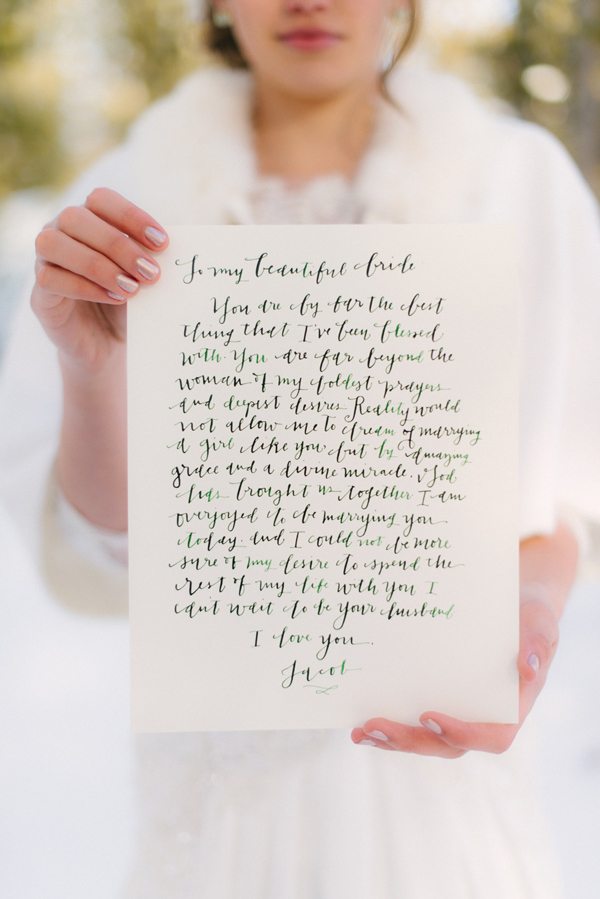 To my beautiful bride
You are by far the best
thing that I've been blessed
with. You are far beyond the
woman of my boldest prayers
and deepest desires Reality would
not allow me to dream of marrying
a girl like you but by amazing
grace and a divine miracle. God
has brought us together I am
overjoyed to be marrying you
today. And I could not be more
sure of my desire to spend the
rest of my life with you I
can't wait to be your husband
I love you.
Jacob